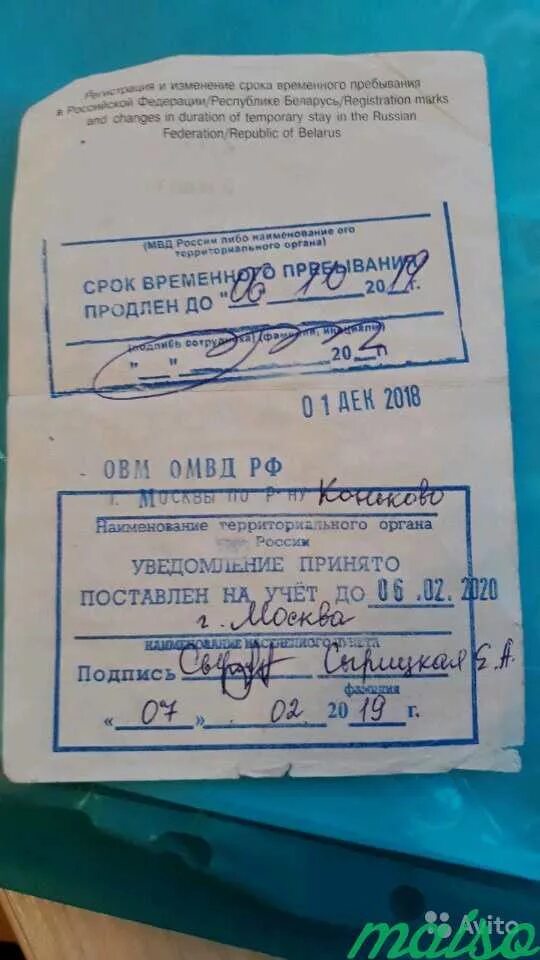 Регистрация и изменение срока временного пребывания
в Российской Федерации/Республике Беларусь/Registration marks
and changes in duration of temporary stay in the Russian
Federation/Republic of Belarus
(МВД России либо наименование его
территориального органа)
СРОК ВРЕМЕННОГО ПРЕБЫВАНИЯ
ПРОДЛЕН ДО "06" 10 2019г.
(подпись сотрудника) (фамилия, инициалы)
"__" 20 г.
01 ДЕК 2018
- ОВМ ОМВД РФ
г. Москвы по р-ну Коньково
Наименование территориального органа
России
УВЕДОМЛЕНИЕ ПРИНЯТО
ПОСТАВЛЕН НА УЧЁТ ДО 06.02.2020
г. Москва
НАИМЕНОВАНИЕ НАСЕЛЕННОГО ПУНКТА
Подпись Сырицкая Е.А.
фамилия
«07» 02 2019 г.
Avito